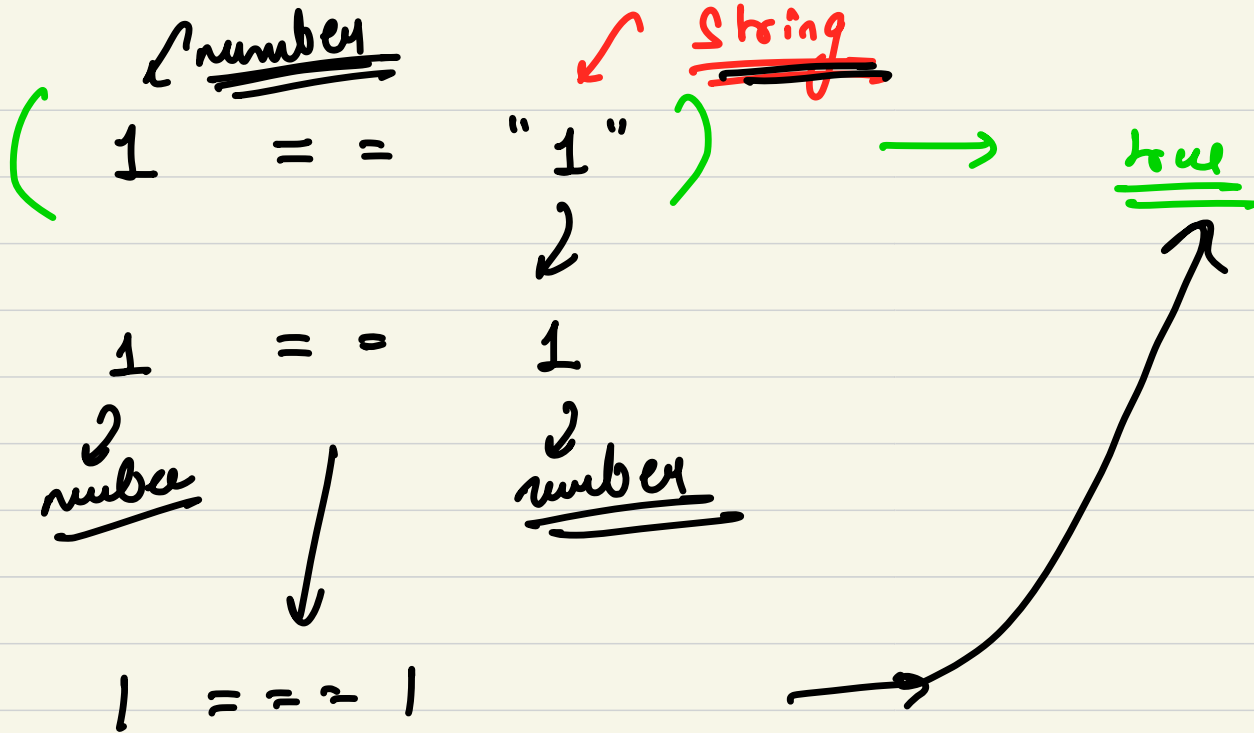 number string
( 1 == "1" ) → true
1 == 1
number number
1 === 1